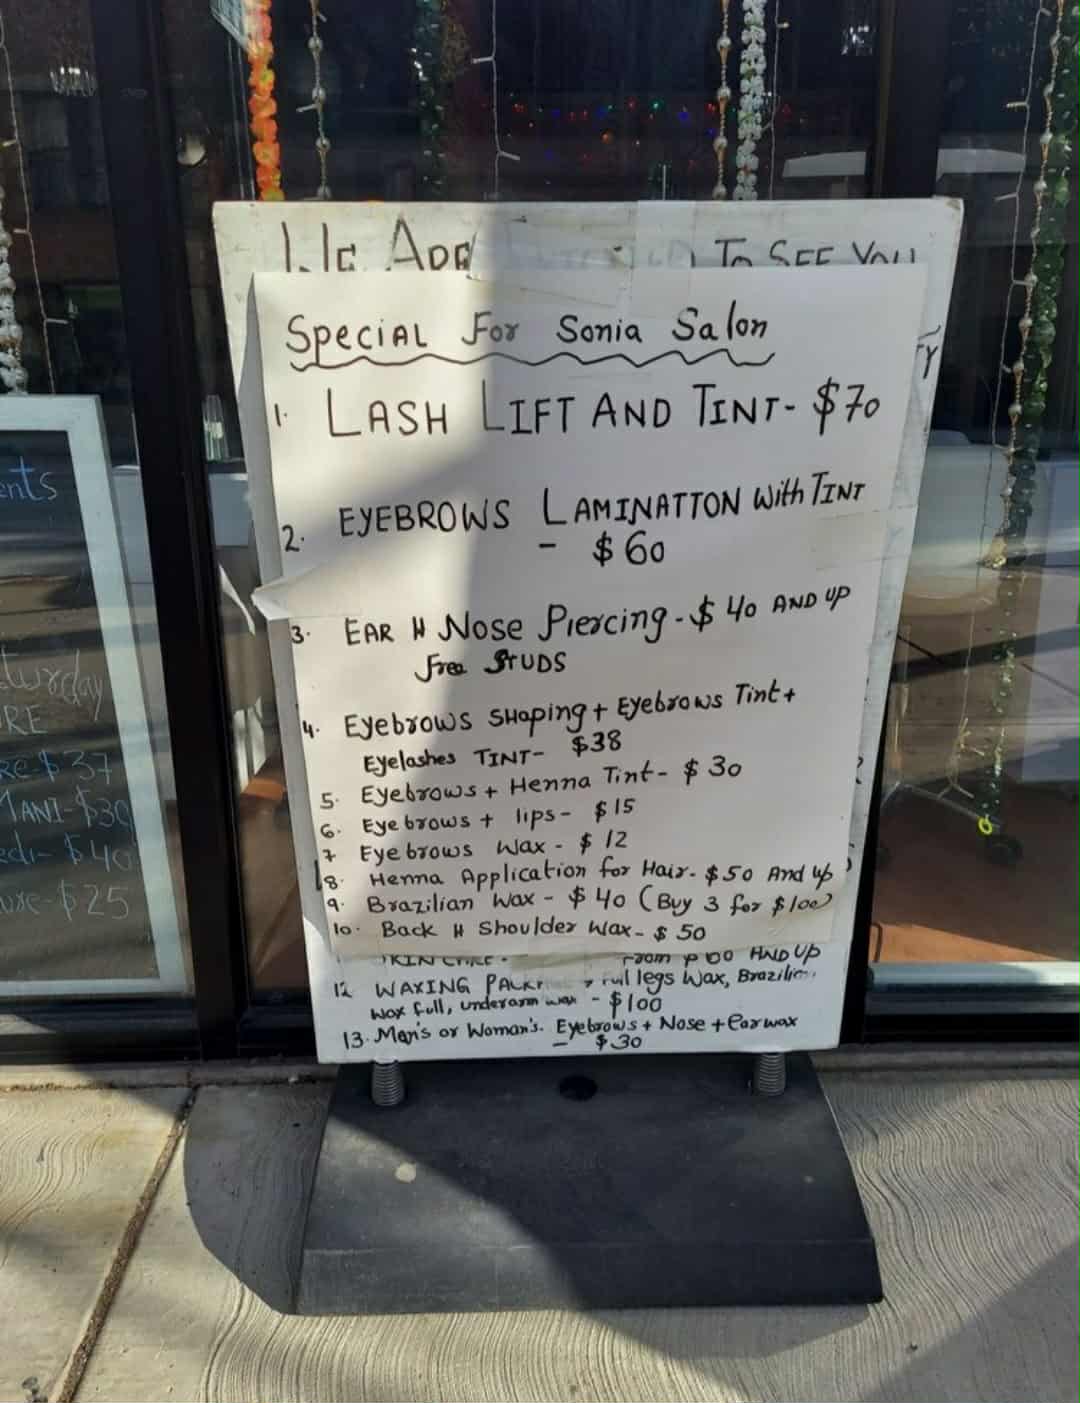 We Are To See You
Special For Sonia Salon
1. LASH LIFT AND TINT- $70
2. EYEBROWS LAMINATTON with TINT
- $60
3. EAR & Nose Piercing - $40 AND UP
free STUDS
4. Eyebrows SHaping + Eyebrows Tint +
Eyelashes TINT- $38
5. Eyebrows + Henna Tint - $30
6. Eyebrows + lips - $15
7 Eyebrows Wax - $12
8. Henna Application for Hair. $50 And up
9. Brazilian Wax - $40 (Buy 3 for $100)
10. Back & Shoulder Wax - $50
AND UP
12 WAXING full legs Wax,
Wax full, underarm wax - $100
13. Man's or Woman's. Eyebrows + Nose + Ear wax
- $30
ents
turday
RE
re $37
MANI-$30
edi- $40
ure-$25